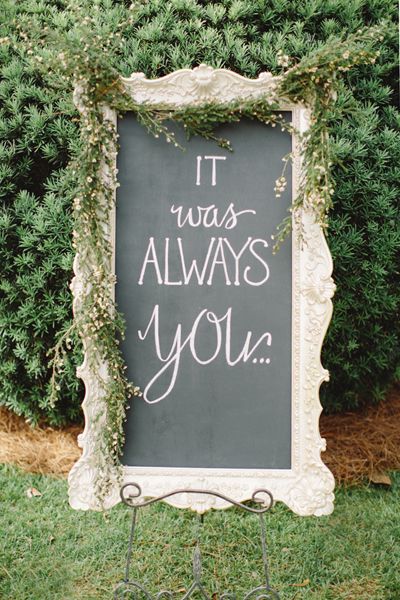 IT
was
ALWAYS
YOU...